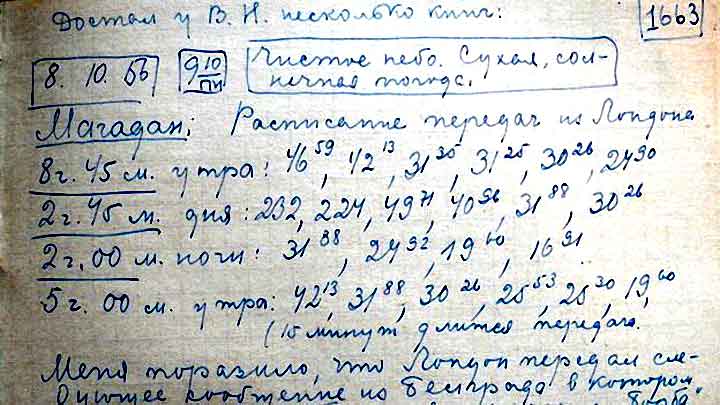 Достал у В. Н. несколько книг:
1663
8. 10. 56
9 10/ПН
Чистое небо. Сухая, сол-
нечная погода.
Магадан; Расписание передач из Лондона
8 г. 45 м. утра: 46 59, 42 13, 31 35, 31 25, 30 26, 24 90
2 г. 45 м. дня: 232, 224, 49 71, 40 96, 31 88, 30 26
2 г. 00 м. ночи: 31 88, 24 92, 19 60, 16 91
5 г. 00 м. утра: 42 13, 31 88, 30 26, 25 53, 25 30, 19 60
(15 минут длится передача.
Меня поразило, что Лондон передал сле-
дующее сообщение из Белграда в котором